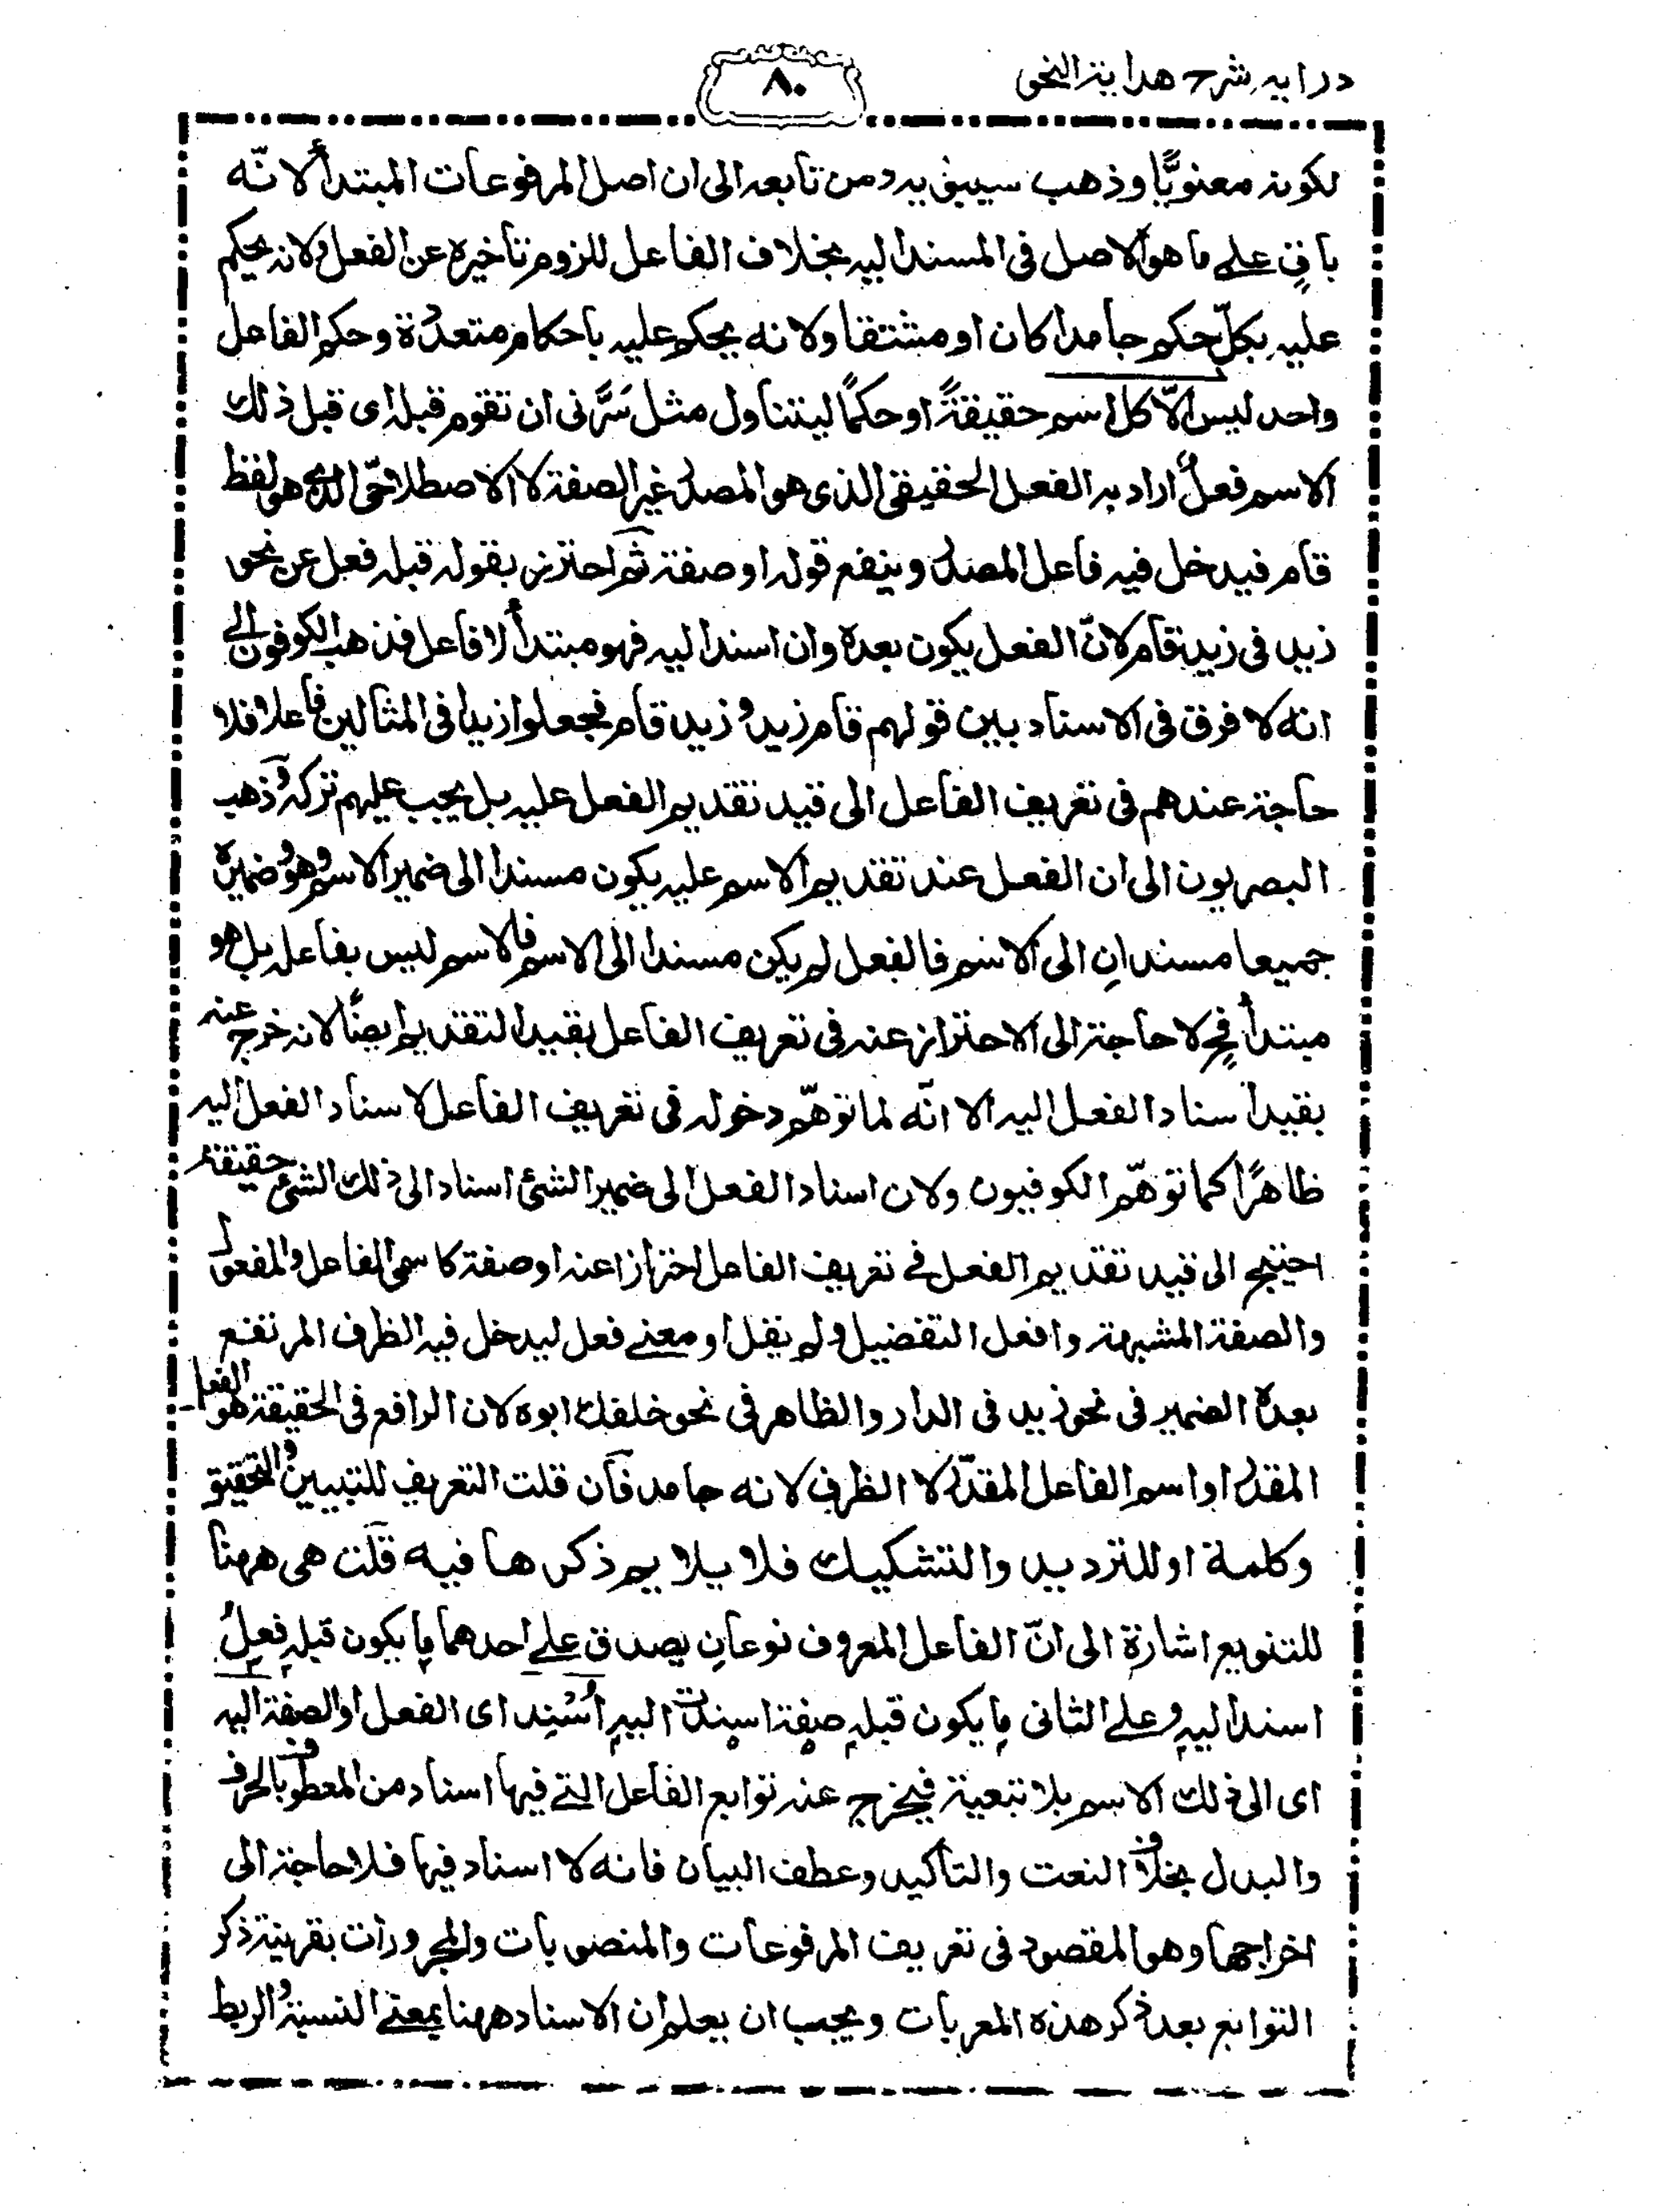 درایہ شرح ھدایۃ النحو
٨٠
لکونہ معنویًّا وذھب سیبویہ ومن تابعہ الی ان اصل المرفوعات المبتدأ لانّہ
باقٍ علے ما ھو الاصل فی المسند الیہ بخلاف الفاعل للزوم تأخیرہ عن الفعل ولانہ یحکم
علیہ بکلّ حکم جامدا کان او مشتقا ولانہ یحکم علیہ باحکام متعدّدۃ وحکم الفاعل
واحد لیس الّا کل اسم حقیقۃً او حکمًا لیتناول مثل سَرَّنی ان تقوم قبلہ ای قبل ذلک
الاسم فعلٌ اراد بہ الفعل الحقیقی الذی ھو المصدر غیر الصفۃ لا الاصطلاحیّ الذی ھو لفظ
قام فیدخل فیہ فاعل المصدر وینفع قولہ او صفۃ ثم احترز بقولہ قبلہ فعل عن نحو
زید فی زید قام لانّ الفعل یکون بعدہ وان اسند الیہ فھو مبتدأ لا فاعل فذھب الکوفون الے
انہ لا فرق فی الاسناد بین قولھم قام زید وزید قام فجعلوا زیدا فی المثالین فاعلا فلا
حاجۃ عندھم فی تعریف الفاعل الی قید تقدیم الفعل علیہ بل یجب علیھم ترکہ وذھب
البصریون الی ان الفعل عند تقدیم الاسم علیہ یکون مسندا الی ضمیر الاسم وھو وضمیرہ
جمیعا مسندانِ الی الاسم فالفعل لم یکن مسندا الی الاسم فالاسم لیس بفاعلہ بل ھو
مبتدأ فح لا حاجۃ الی الاحتراز عنہ فی تعریف الفاعل بقید التقدیم ایضًا لانہ خرج عنہ
بقید اسناد الفعل الیہ الا انّہ لما توھّم دخولہ فی تعریف الفاعل لاسناد الفعل الیہ
ظاھرًا کما توھّم الکوفیون ولان اسناد الفعل الی ضمیر الشئ اسناد الی ذلک الشئ حقیقۃ
احتیج الی قید تقدیم الفعل فے تعریف الفاعل احترازا عنہ او صفۃ کاسمی الفاعل والمفعول
والصفۃ المشبھۃ وافعل التفضیل ولم یقل او معنے فعل لیدخل فیہ الظرف المرتفع
بعدہ الضمیر فی نحو زید فی الدار والظاھر فی نحو خلفک ابوہ لان الرافع فی الحقیقۃ ھو الفعل
المقدر او اسم الفاعل المقدّر لا الظرف لانہ جامد فان قلت التعریف للتبیین والتحقیق
وکلمۃ او للتردید والتشکیک فلا یلایم ذکرھا فیہ قلت ھی ھھنا
للتنویع اشارۃ الی انّ الفاعل المعروف نوعانِ یصدق علے احدھما ما یکون قبلہ فعلٌ
اسند الیہ وعلے الثانی ما یکون قبلہ صفۃ اسندت الیہ اُسْنِد ای الفعل او الصفۃ الیہ
ای الی ذلک الاسم بلا تبعیۃ فیخرج عنہ توابع الفاعل التے فیھا اسناد من المعطوف بالحرف
والبدل بخلاف النعت والتأکید وعطف البیان فانہ لا اسناد فیھا فلا حاجۃ الی
اخراجھا وھو المقصود فی تعریف المرفوعات والمنصوبات والمجرورات بقرینۃ ذکر
التوابع بعد ذکر ھذہ المعربات ویجب ان یعلم ان الاسناد ھھنا بمعنے النسبۃ والربط